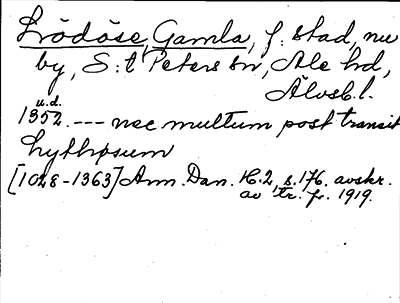 Lödöse, Gamla, f. stad, nu
by, S:t Peters sn, Ale hd,
Älvsb. l.
u.d.
1352. --- nec multum post transit
lythosum
[1028-1363] Ann. Dan. H. 2, s. 176. avskr.
av tr. fr. 1919.